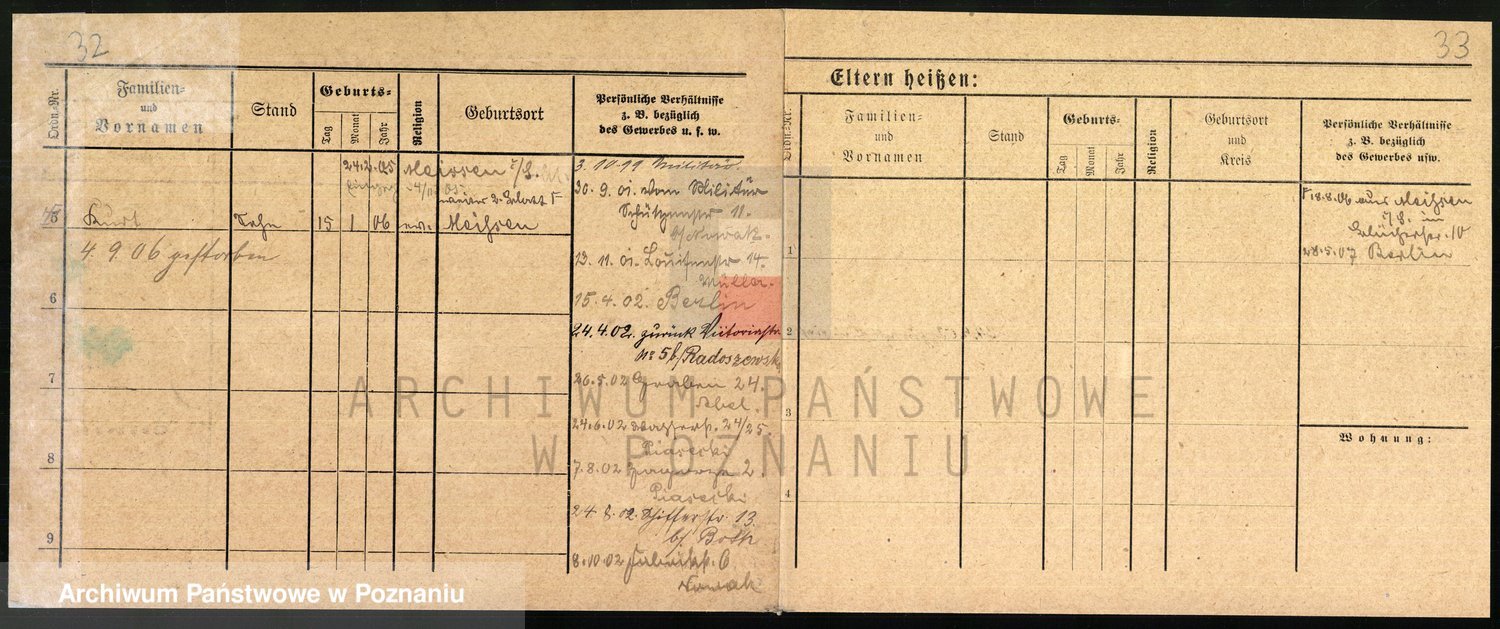 32
Ordn.-Nr.
Familien-
und
Vornamen
Stand
Geburts-
Tag
Monat
Jahr
Religion
Geburtsort
Persönliche Verhältnisse
z. B. bezüglich
des Gewerbes u. s. w.
24.2.05 Meissen
Kurt Sohn 15 1 06 ev. Meissen
4. 9. 06 gestorben
6
7
8
9
3. 10. 99 Militär.
30. 9. 01. vom Militär
Schützenstr 11.
b/ Nowak.
13. 11. 01. Louisenstr 14.
Müller.
15. 4. 02. Berlin
24. 4. 02. zurück Viktoriastr.
No 5 b/ Radoszewsk
26. 5. 02 Graben 24.
Abel.
24. 6. 02 Wasserst. 24/25
Piasecki
7. 8. 02 2.
Piasecki
24 8. 02. Schifferstr 13.
b/ Both
8. 10. 02 6
Nowak
33
Eltern heißen:
Ordn.-Nr.
Familien-
und
Vornamen
Stand
Geburts-
Tag
Monat
Jahr
Religion
Geburtsort
und
Kreis
Persönliche Verhältnisse
z. B. bezüglich
des Gewerbes usw.
18. 8. 06 aus Meissen
i/S. in
Blücherstr. 10
28. 5. 07 Berlin
1
2
3
4
Wohnung:
ARCHIWUM PAŃSTWOWE
W POZNANIU
Archiwum Państwowe w Poznaniu